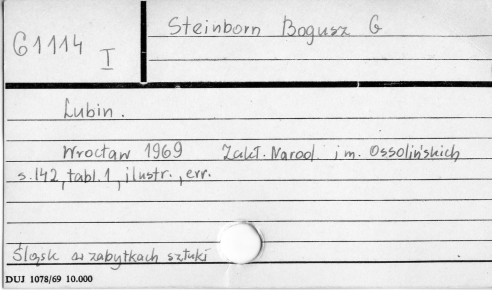 G 1114 I
Steinborn Bogusz G
Lubin.
Wrocław 1969 Zakł. Narod. im. Ossolińskich
s. 142, tabl. 1, ilustr., err.
Śląsk w zabytkach sztuki
DUJ 1078/69 10.000